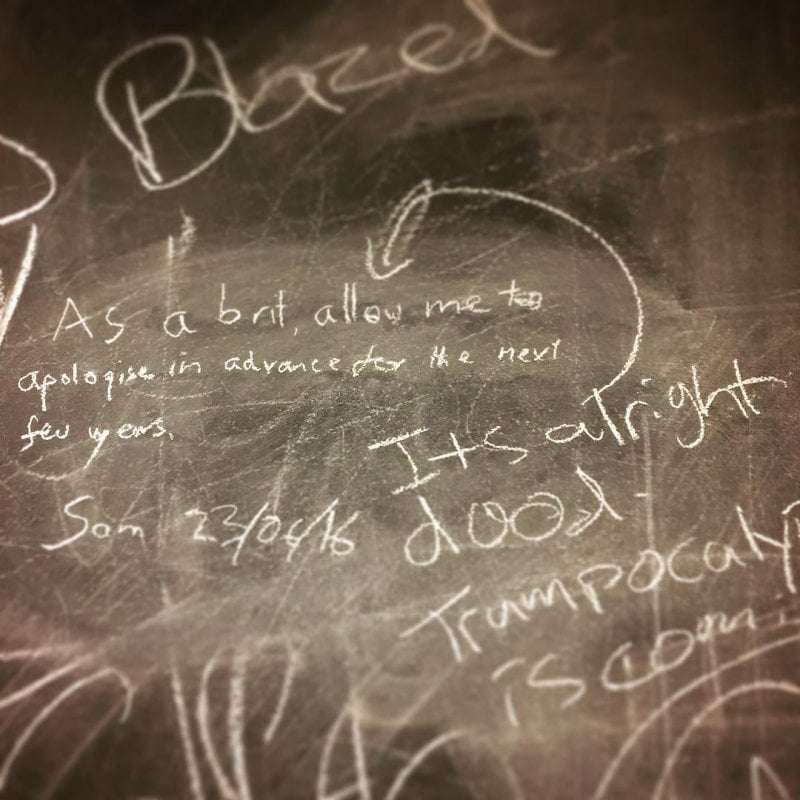 Blazed
As a brit, allow me to
apologise in advance for the next
few years.
Sam 23/06/16
Its alright
dood-
Trumpocaly
is comi